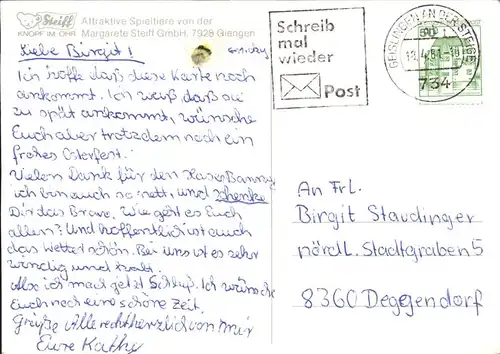 Steiff
KNOPF IM OHR
Attraktive Spieltiere von der
Margarete Steiff GmbH, 7928 Giengen
Liebe Birgit!
Ich hoffe daß diese Karte noch
ankommt. Ich weiß daß sie
zu spät ankommt, wünsche
Euch aber trotzdem noch ein
frohes Osterfest.
Vielen Dank für den Hasen Banny
ich bin auch so nett, und schenke
Dir das Brave. Wie geht es Euch
allen? Und hoffentlich ist euch
das Wetter schön. Bei uns ist es sehr
windig und kalt.
Also ich mach jetzt Schluß. Ich wünsche
Euch noch eine schöne Zeit.
Grüße Alle recht herzlich von mir
Eure Kathy
Schreib
mal
wieder
Post
GEISLINGEN AN DER STEIGE
734
An Frl.
Birgit Staudinger
nördl. Stadtgraben 5
8360 Deggendorf